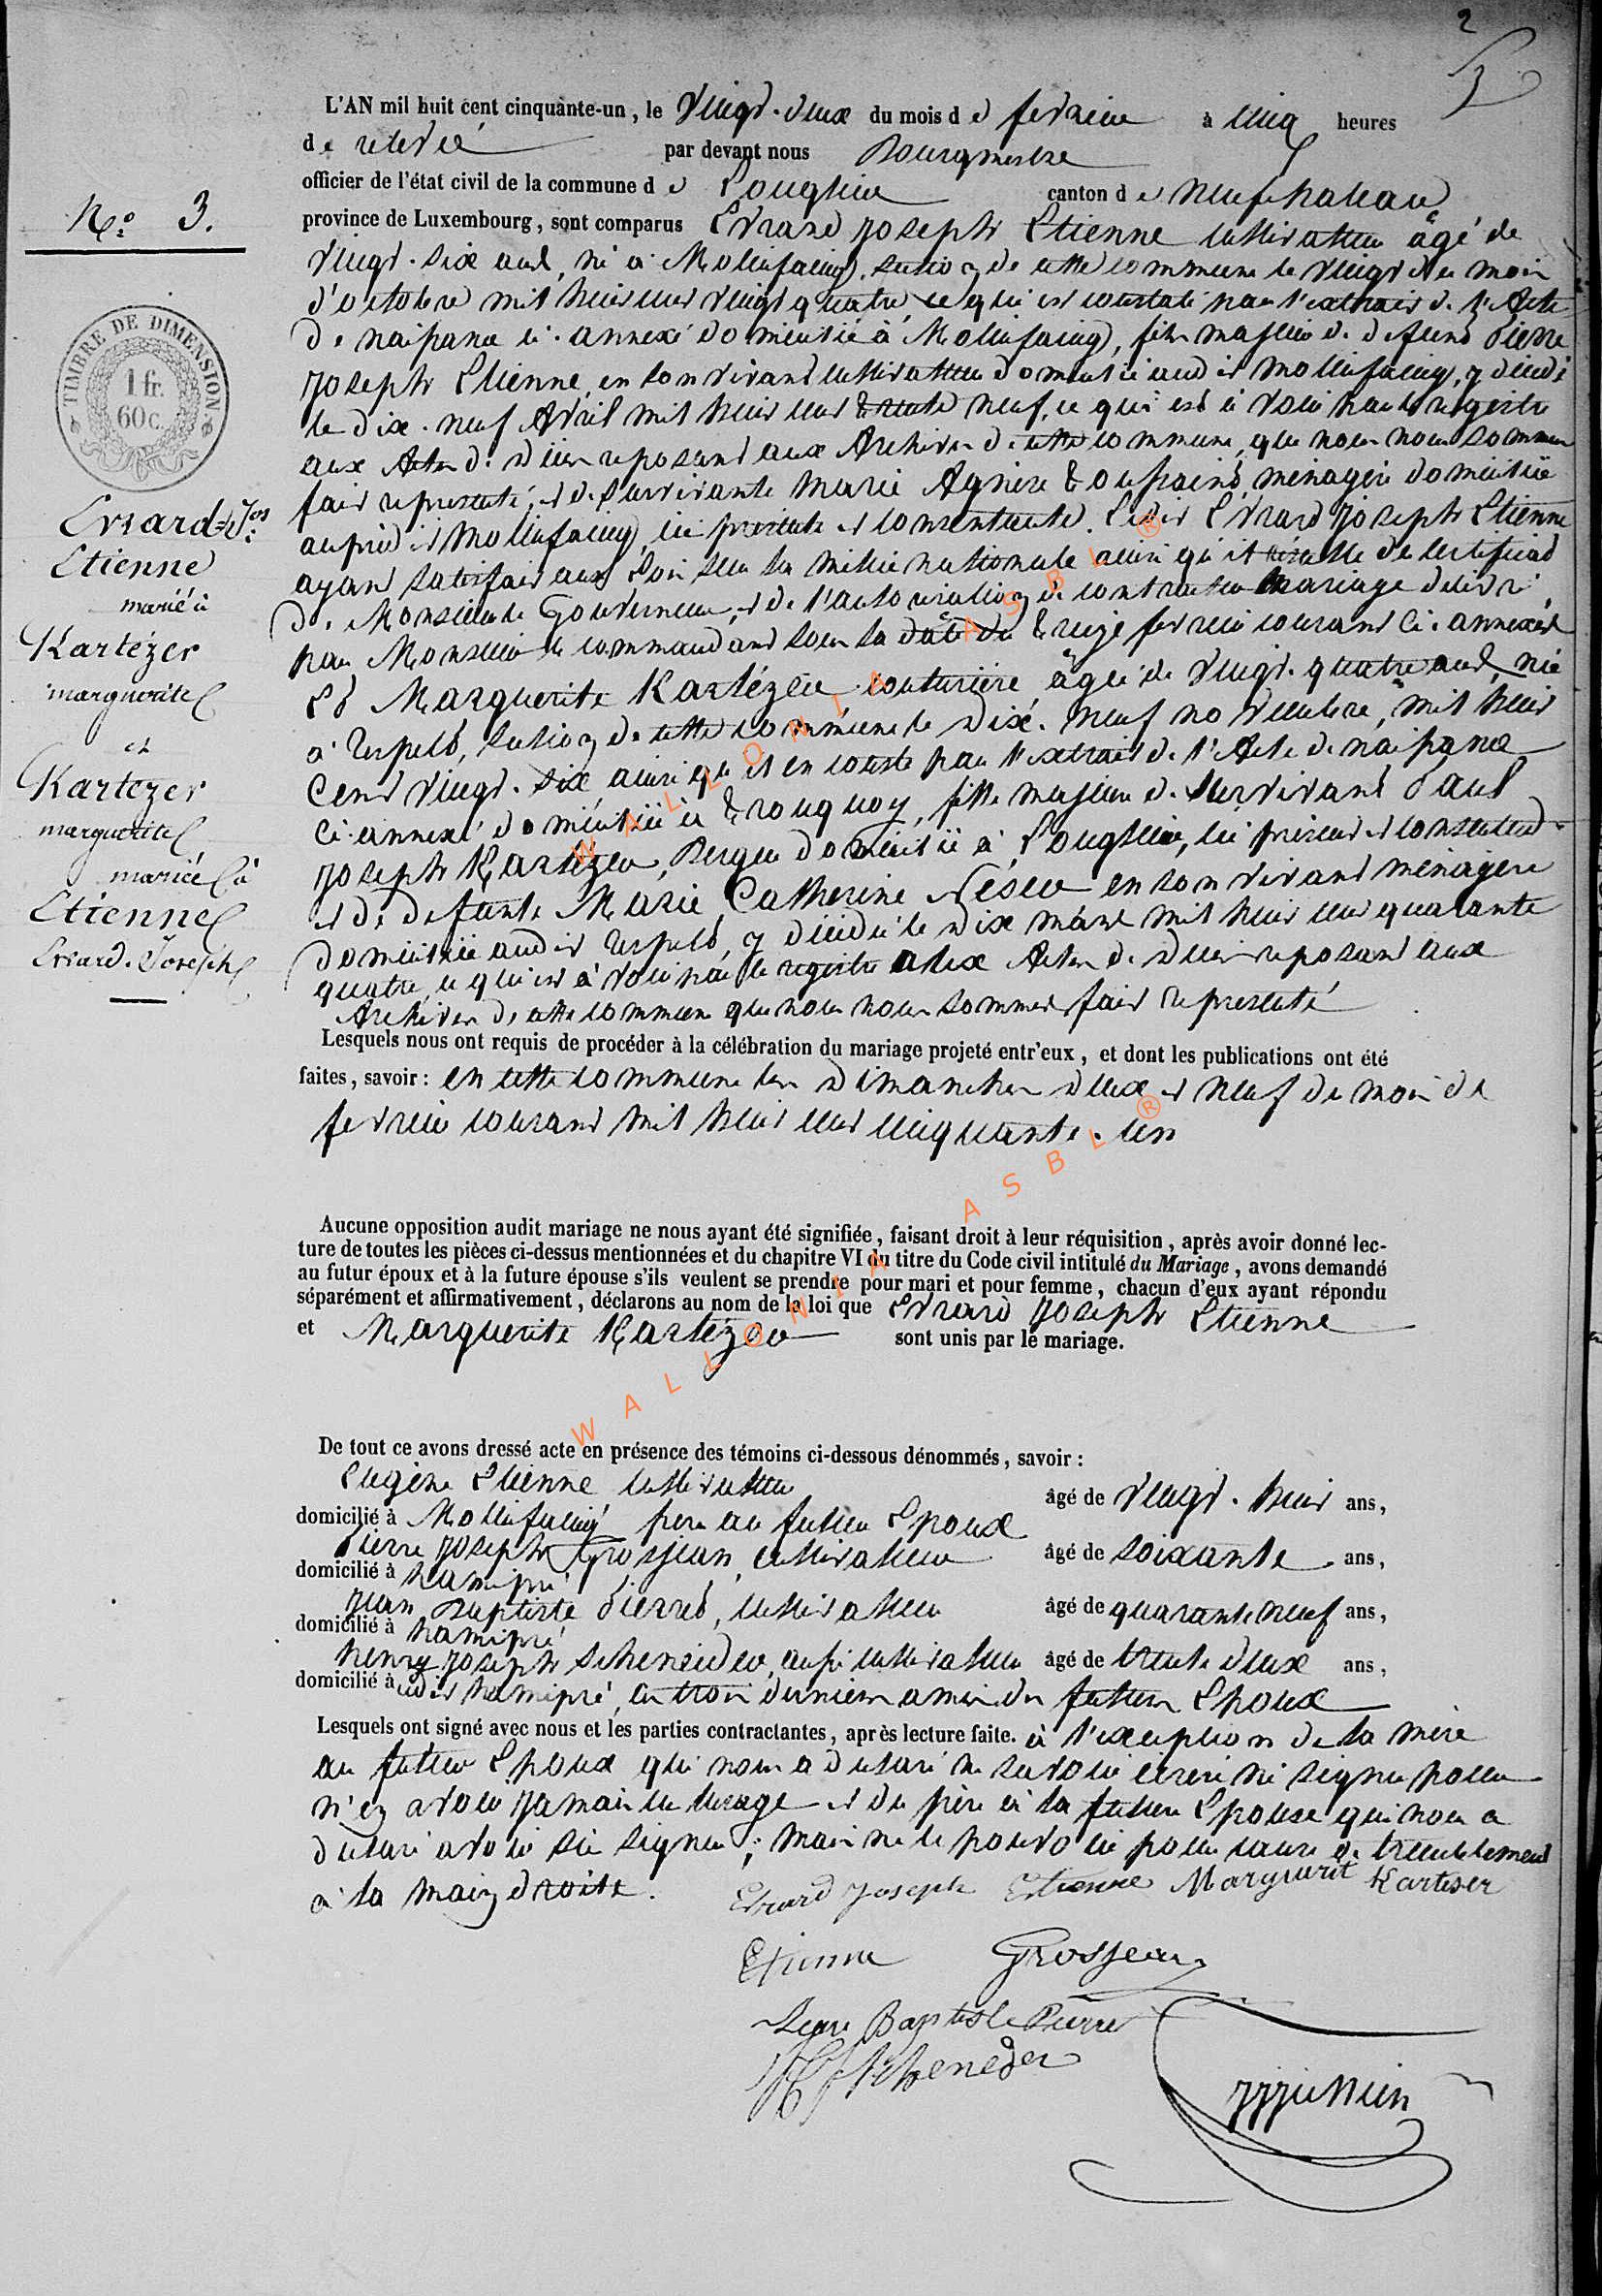 2
3
L'AN mil huit cent cinquante-un, le Vingt-deux du mois d e fevrier à cinq heures
de relevée par devant nous Bourgmestre
officier de l'état civil de la commune d e Longlier canton d e Neufchateau
province de Luxembourg, sont comparus Evrard Joseph Etienne cultivateur âgé de
vingt-six ans, né à Mollinfaing, section de cette commune le vingt du mois
d'octobre mil huit cent vingt quatre, ce qui est constaté par l'extrait de l'Acte
de naissance ci-annexé domicilié à Mollinfaing, fils majeur de defunt Pierre
Joseph Etienne, en son vivant cultivateur domicilié audit Mollinfaing, y décédé
le dix-neuf Avril mil huit cent trente neuf, ce qui est à voir par le registre
aux Actes de décès reposant aux Archives de cette commune, que nous nous sommes
fait representé, et de survivante Marie Agnès Toussaint, ménagère domiciliée
audit Mollinfaing, ici présente et consentante. Ledit Evrard Joseph Etienne
ayant satisfait aux Lois sur la milice nationale ainsi qu'il résulte du certificat
de Monsieur le Gouverneur, et de l'autorisation de contracter mariage délivré
par Monsieur le commandant sous la date du treize fevrier courant ci-annexés
Et Marguerite Kartézer couturière âgée de vingt-quatre ans, née
à Respelt, section de cette commune le dix-neuf novembre, mil huit
Cent vingt-six ainsi qu'il en conste par l'extrait de l'Acte de naissance
ci-annexé domiciliée à Tronquoy, fille majeure de survivant Paul
Joseph Kartézer, Berger domicilié à Longlier, ici présent et consentant
et de defunte Marie Catherine en son vivant ménagère
domiciliée audit Respelt, y décédée le dix mars mil huit cent quarante
quatre, ce qui est à voir par le registre aux Actes de décès reposant aux
Archives de cette commune que nous nous sommes fait representé
Lesquels nous ont requis de procéder à la célébration du mariage projeté entr'eux, et dont les publications ont été
faites, savoir: en cette commune les Dimanches deux et neuf du mois de
fevrier courant mil huit cent cinquante-un
Aucune opposition audit mariage ne nous ayant été signifiée, faisant droit à leur réquisition, après avoir donné lec-
ture de toutes les pièces ci-dessus mentionnées et du chapitre VI du titre du Code civil intitulé du Mariage, avons demandé
au futur époux et à la future épouse s'ils veulent se prendre pour mari et pour femme, chacun d'eux ayant répondu
séparément et affirmativement, déclarons au nom de la loi que Evrard Joseph Etienne
et Marguerite Kartézer sont unis par le mariage.
De tout ce avons dressé acte en présence des témoins ci-dessous dénommés, savoir:
Eugène Etienne cultivateur âgé de vingt-huit ans,
domicilié à Mollinfaing frère au futur Epoux
Pierre Joseph Grosjean, cultivateur âgé de soixante ans,
domicilié à hamipré
Jean Baptiste Pierret, cultivateur âgé de quarante neuf ans,
domicilié à hamipré
henry Joseph Scheneider, aussi cultivateur âgé de trente deux ans,
domicilié à udit hamipré, les trois derniers amis du futur Epoux
Lesquels ont signé avec nous et les parties contractantes, après lecture faite. à l'exception de la mère
au futur Epoux qui nous a déclaré ne savoir écrire ni signer pour
n'en avoir jamais eu l'usage et du père à la future Epouse qui nous a
déclaré avoir sû signer; mais ne le pouvoir pour cause de tremblement
à la main droite. Evrard Joseph Etienne Margurit Karteser
Etienne Grosjean
Jean Baptiste Pierret
HJ Scheneder
No. 3.
TIMBRE DE DIMENSION.
1 fr.
60c.
Evrard=Jos
Etienne
marié à
Kartézer
marguerite
et
Kartézer
marguerite
mariée à
Etienne
Evrard. Joseph
WALLONIA ASBL ®
WALLONIA ASBL ®